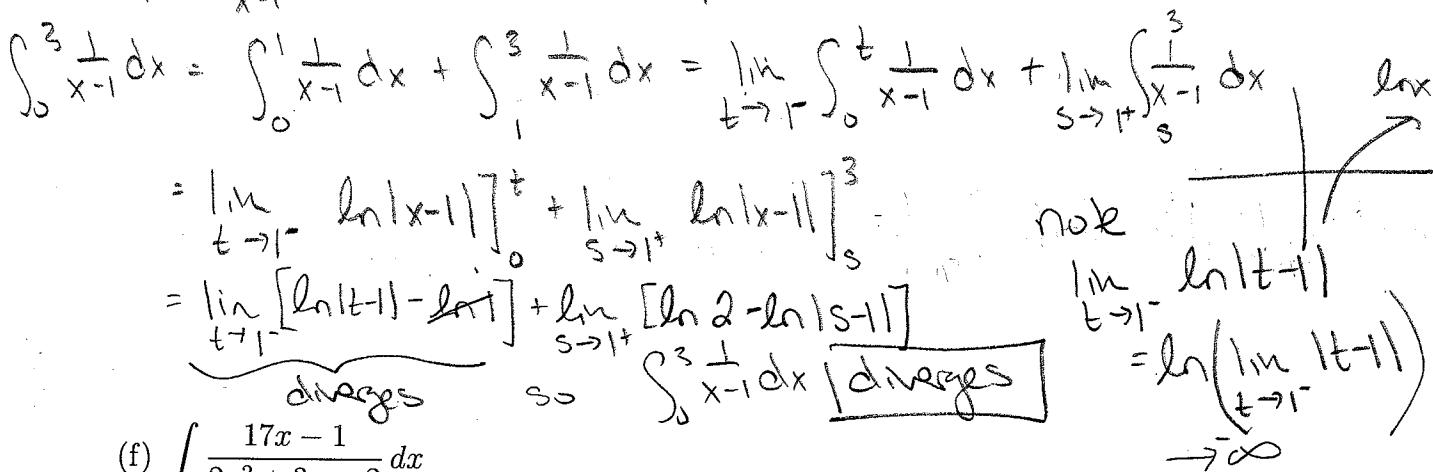 x-1
∫₀³ 1/(x-1) dx = ∫₀¹ 1/(x-1) dx + ∫₁³ 1/(x-1) dx = lim_{t→1⁻} ∫₀ᵗ 1/(x-1) dx + lim_{s→1⁺} ∫ₛ³ 1/(x-1) dx
ln x
= lim_{t→1⁻} ln|x-1|]₀ᵗ + lim_{s→1⁺} ln|x-1|]ₛ³
note
= lim_{t→1⁻} [ln|t-1| - ln 1] + lim_{s→1⁺} [ln 2 - ln|s-1|]
lim_{t→1⁻} ln|t-1|
= ln(lim_{t→1⁻} |t-1|)
diverges so ∫₀³ 1/(x-1) dx diverges
→ -∞
(f) ∫ 17x - 1 dx